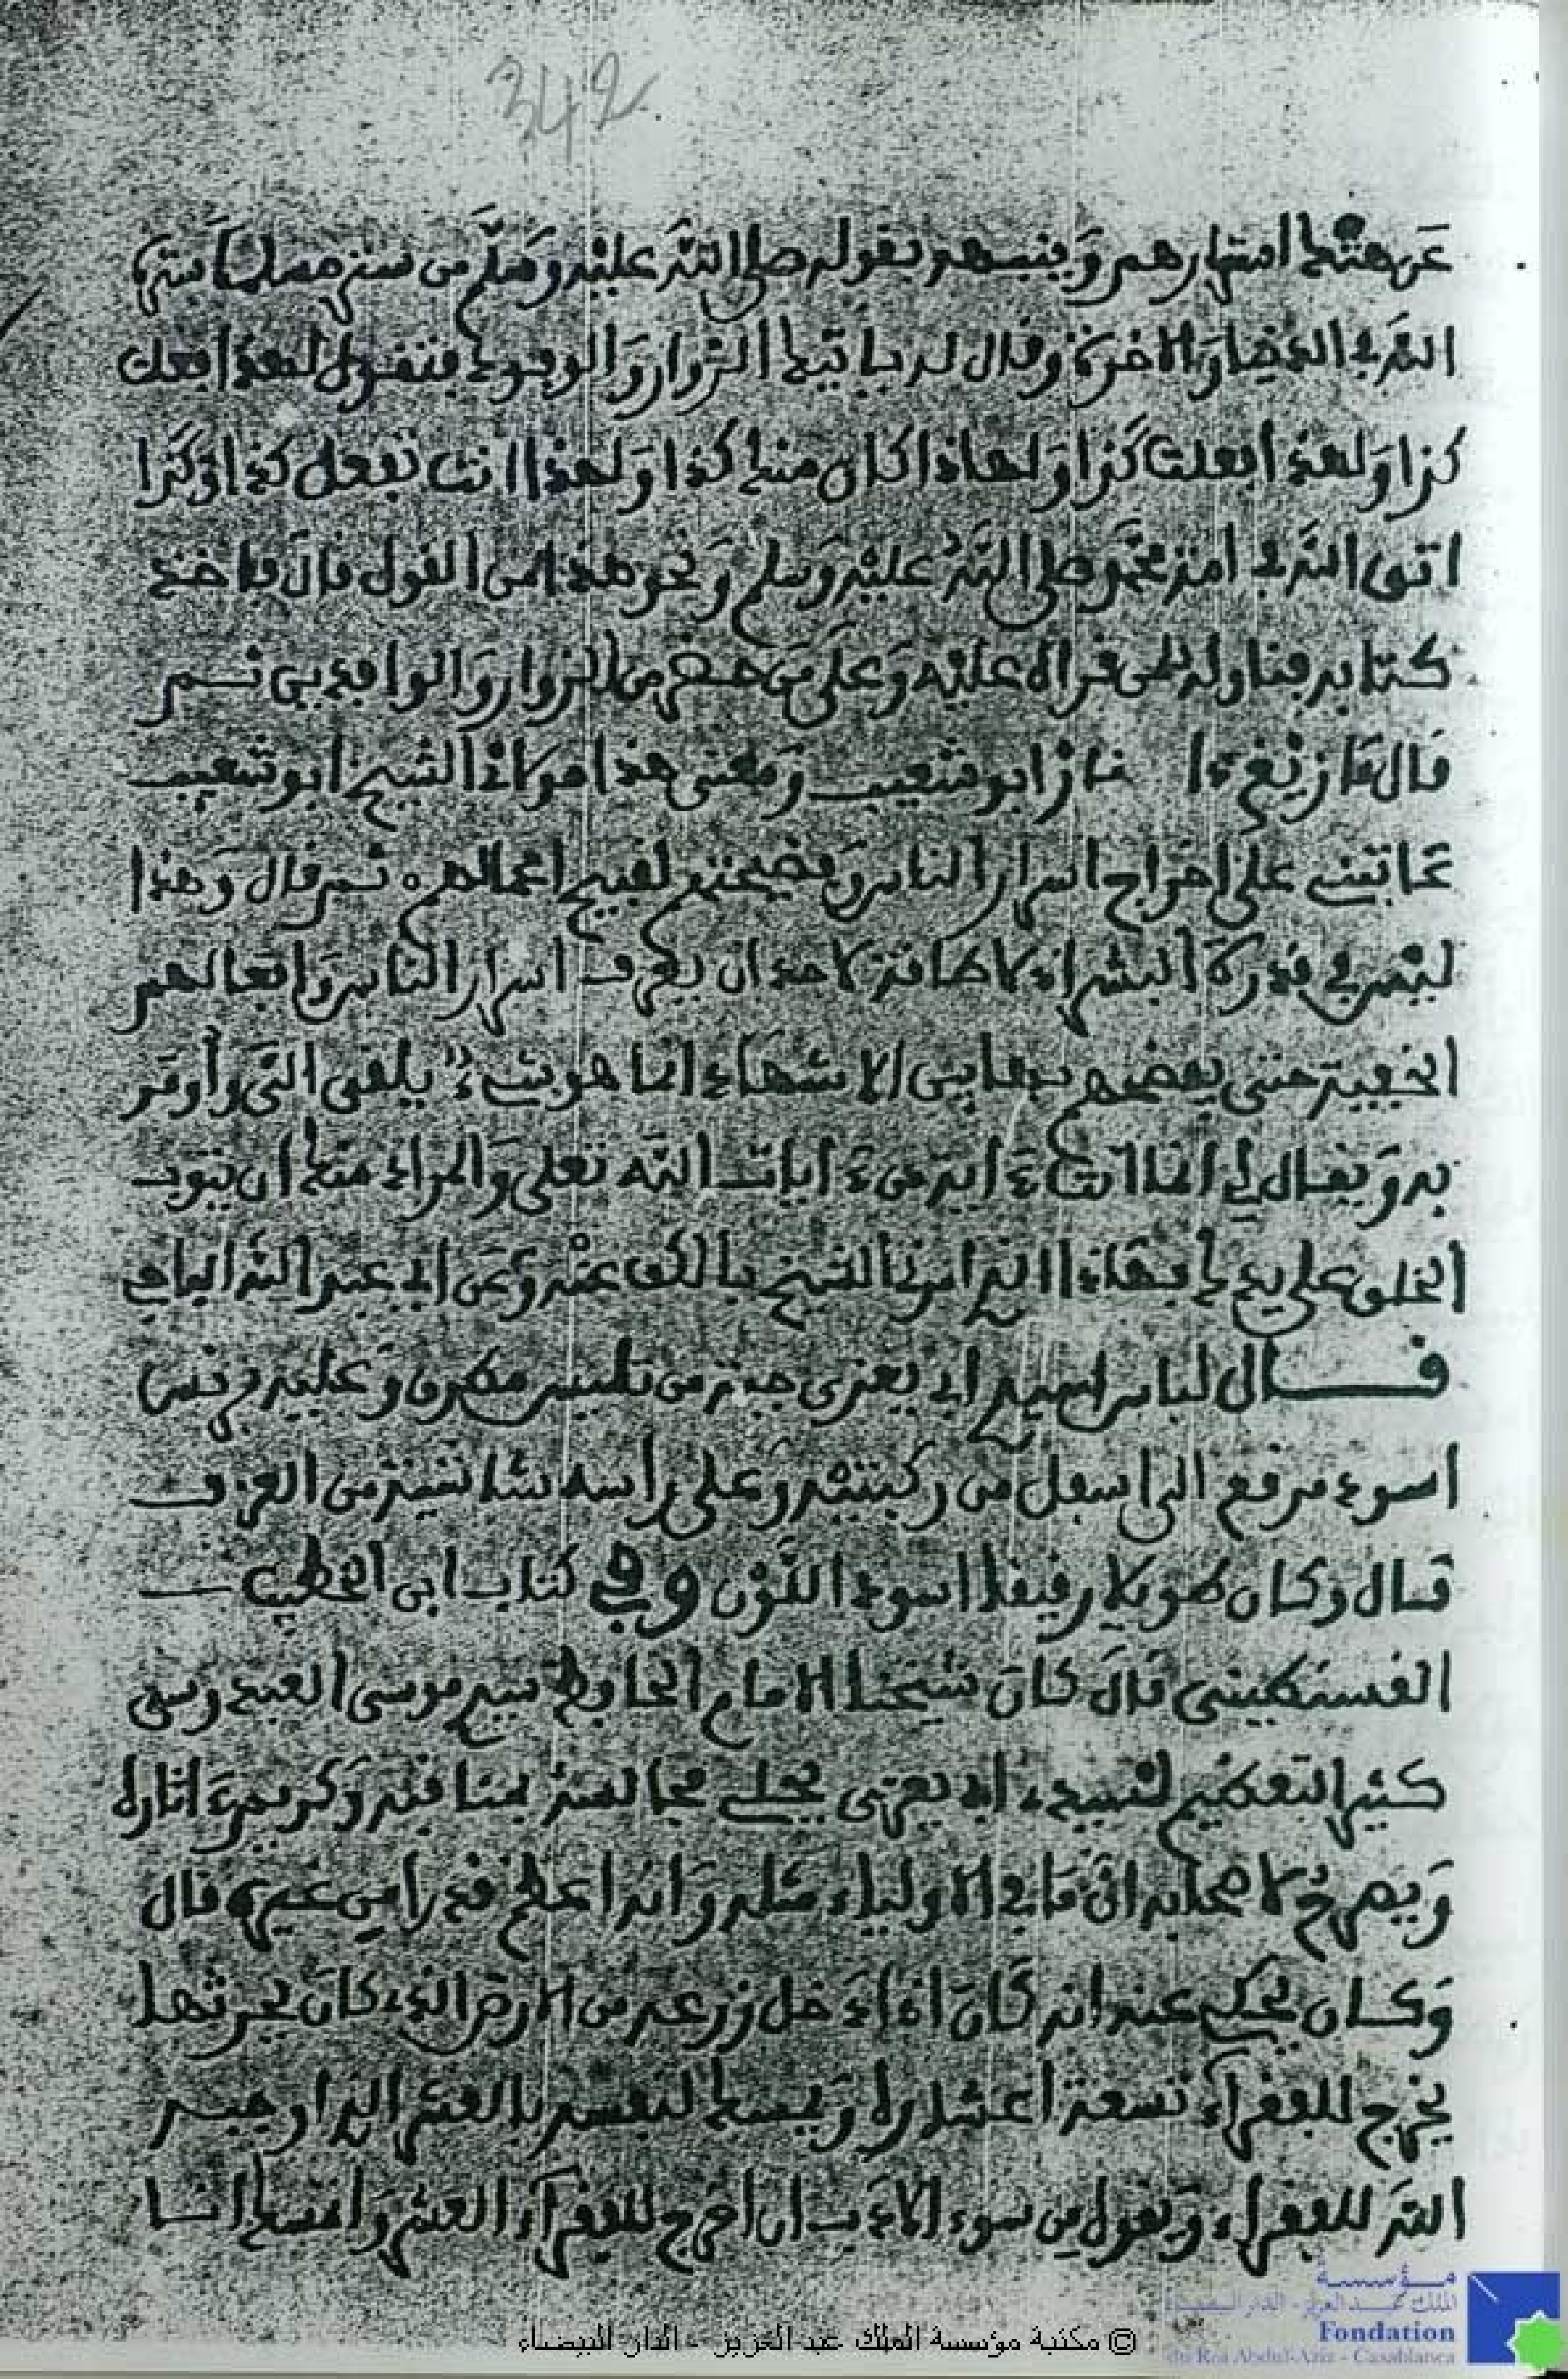 342
عن هتك استارهم وينبههم بقوله صلى الله عليه وسلم من ستر مسلما ستره
الله في الدنيا والاخرة وقال له ياتيك الزوار والوفود فتقول لهذا فعلت
كذا ولهذا فعلت كذا ولهاذا كان منك كذا ولهذا انت تفعل كذا وكذا
اتق الله في امة محمد صلى الله عليه وسلم ونحو هذا من القول قال فاخذ
كتابه فناوله لمن قراه عليه وعلى من حضر من الزوار والوافدين ثم
قال ابو شعيب ومعنى هذا مولاي الشيخ ابو شعيب
عاتبني على اخراج اسرار الناس وفضيحتهم لقبيح اعمالهم ثم قال وهذا
ليس في قدرة البشر اذ لا طاقة لاحد ان يعرف اسرار الناس وافعالهم
الخفية حتى يفضحهم بها بين الاشهاد انما هو شيء يلقى الي واومر
به ويقال لي انما انت ءاية من ءايات الله تعلى والمراد منك ان يتوب
الخلق على يديك فهذا الذي امرنا الشيخ بالكف عنه وعن ابي عبد الله الباجي
قال لباس ابي يعزى جبة من تليس مطرق وعليه برنس
اسود مرقع الى اسفل من ركبتيه وعلى راسه شاشية من العزف
قال وكان طويلا رقيقا اسود اللون وفي كتاب ابن الخطيب
القسنطيني قال كان شيخنا الامام الحافظ موسى العبدوسي
كثير التعظيم لسيدي ابي يعزى يحلي مجالسه بمناقبه وكريم ءاثاره
ويصرح لاصحابه ان ما في الاولياء مثله وانه اعظم قدرا من غيره قال
وكان يحكي عنه انه كان اذا دخل زرعه من الارض الذي كان يحرثها
يخرج للفقراء تسعة اعشاره ويمسك لنفسه بالعشر الذي اوجبه
الله للفقراء ويقول من سوء الادب ان اخرج للفقراء العشر وامسك انا
© مكتبة مؤسسة الملك عبد العزيز - الدار البيضاء
مؤسسة
الملك عبد العزيز - الدار البيضاء
Fondation
du Roi Abdul-Aziz - Casablanca